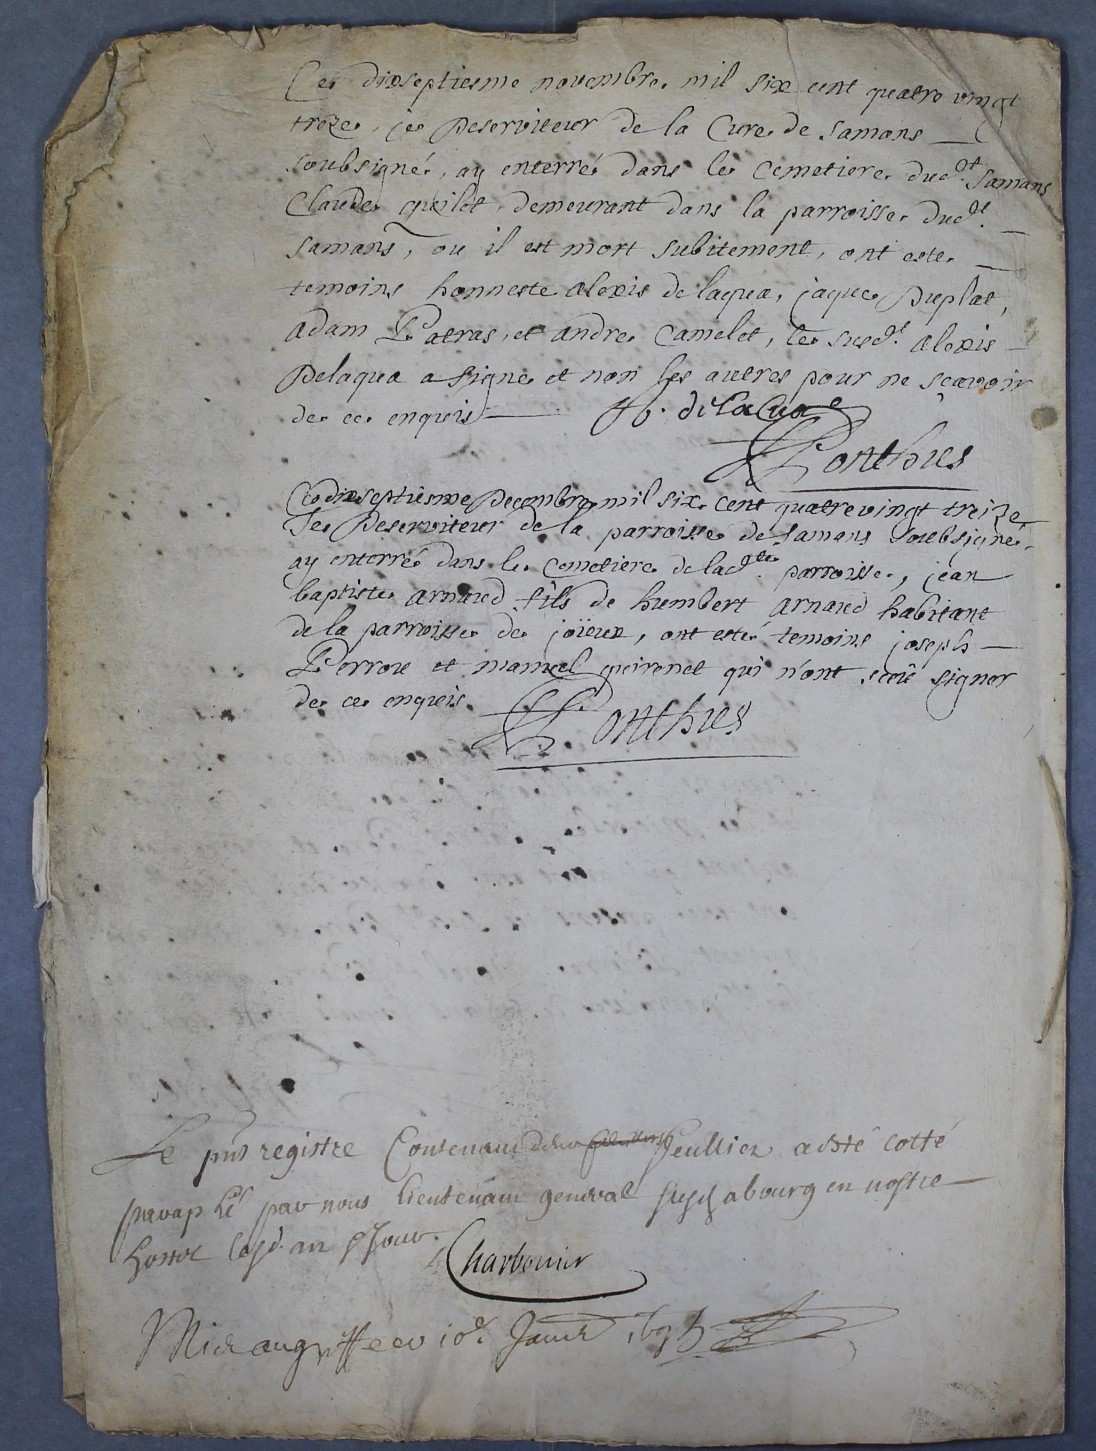 Ce dixseptiesme novembre mil six cent quatre vingt
treze, je Deserviteur de la Cure de samans
soubsigné, ay enterré dans le cemetiere dud.t samans
Claude quilet demeurant dans la parroisse dud.t
samans, ou il est mort subitement, ont este
temoins honneste alexis de laqua, jaque Duplat,
adam Patras, et andre Camelet, le susd.t alexis
Delaqua a signe et non les autres pour ne scavoir
de ce enquis de laqua
Ponthus
Ce dixseptiesme Decembre mil six cent quatrevingt treize,
Je Deserviteur de la parroisse de samans soubsigné
ay enterré dans le cemetiere de lad.te parroisse, jean
baptiste arnaud fils de humbert arnaud habitant
de la parroisse de joïeux, ont esté temoins joseph
Perrou et manuel peironet qui n'ont sceu signer
de ce enquis. Ponthus
Le pnt registre Contenant feulliez a esté cotté
parap hé par nous lieutenant general a bourg en nostre
hostel
Charbonier
Mis au greffe ce 10e Janvier